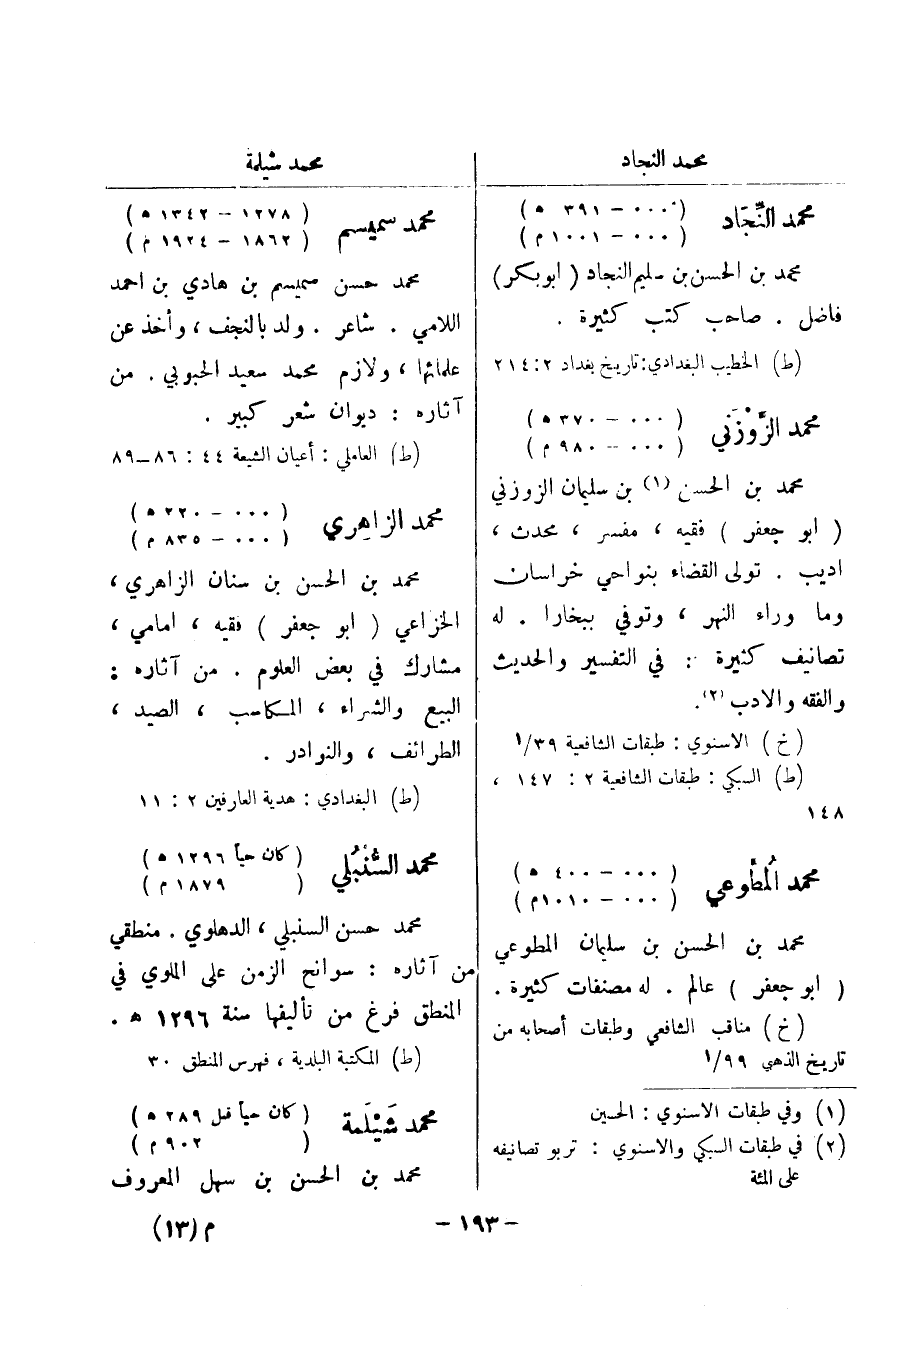 محمد النجاد
محمد النِّجَاد
( ٠٠٠ – ٣٩١ ه )
( ٠٠٠ – ١٠٠١ م )
محمد بن الحسن بن سليم النجاد ( ابو بكر )
فاضل . صاحب كتب كثيرة .
(ط) الخطيب البغدادي : تاريخ بغداد ٢ : ٢١٤
محمد الزَّوْزَني
( ٠٠٠ – ٣٧٠ ه )
( ٠٠٠ – ٩٨٠ م )
محمد بن الحسن (١) بن سليمان الزوزني
( ابو جعفر ) فقيه ، مفسر ، محدث ،
اديب . تولى القضاء بنواحي خراسان
وما وراء النهر ، وتوفي ببخارا . له
تصانيف كثيرة : في التفسير والحديث
والفقه والادب (٢).
(خ) الاسنوي : طبقات الشافعية ٣٩/١
(ط) السبكي : طبقات الشافعية ٢ : ١٤٧ ،
١٤٨
محمد المُطَّوعي
( ٠٠٠ – ٤٠٠ ه )
( ٠٠٠ – ١٠١٠ م )
محمد بن الحسن بن سليمان المطوعي
( ابو جعفر ) عالم . له مصنفات كثيرة .
(خ) مناقب الشافعي وطبقات أصحابه من
تاريخ الذهبي ٩٩/١
(١) وفي طبقات الاسنوي : الحسين
(٢) في طبقات السبكي والاسنوي : تربو تصانيفه
على المئة
محمد شيلمة
محمد سميسم
( ١٢٧٨ – ١٣٤٢ ه )
( ١٨٦٢ – ١٩٢٤ م )
محمد حسن سميسم بن هادي بن احمد
اللامي . شاعر . ولد بالنجف ، وأخذ عن
علمائها ، ولازم محمد سعيد الحبوبي . من
آثاره : ديوان شعر كبير .
(ط) العاملي : أعيان الشيعة ٤٤ : ٨٦–٨٩
محمد الزاهِري
( ٠٠٠ – ٢٢٠ ه )
( ٠٠٠ – ٨٣٥ م )
محمد بن الحسن بن سنان الزاهري ،
الخزاعي ( ابو جعفر ) فقيه ، امامي ،
مشارك في بعض العلوم . من آثاره :
البيع والشراء ، المكاسب ، الصيد ،
الطرائف ، والنوادر .
(ط) البغدادي : هدية العارفين ٢ : ١١
محمد السُّنْبُلي
( كان حياً ١٢٩٦ ه )
( ١٨٧٩ م )
محمد حسن السنبلي ، الدهلوي . منطقي
من آثاره : سوانح الزمن على الملوي في
المنطق فرغ من تأليفها سنة ١٢٩٦ ه .
(ط) المكتبة البلدية ، فهرس المنطق ٣٠
محمد شَيْلَمة
( كان حياً قبل ٢٨٩ ه )
( ٩٠٢ م )
محمد بن الحسن بن سهل المعروف
– ١٩٣ –
م (١٣)